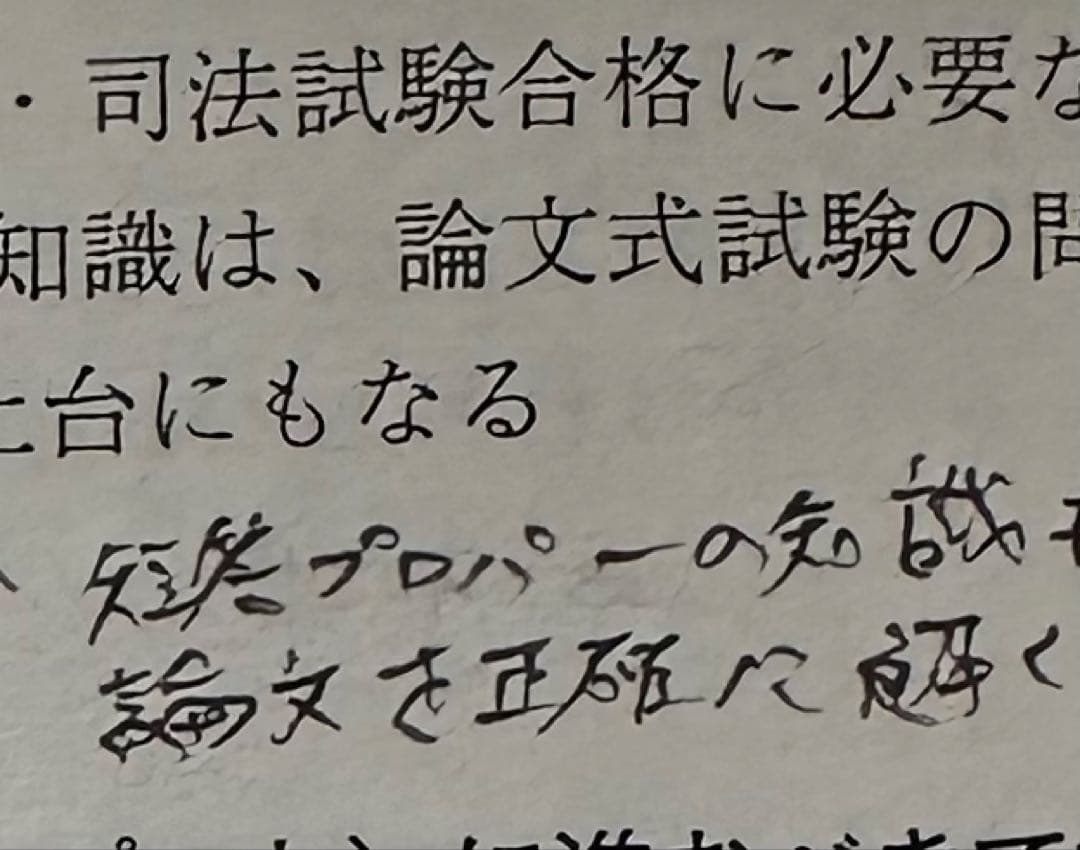 ・司法試験合格に必要な
知識は、論文式試験の問
土台にもなる
短答プロパーの知識も
論文を正確に解く